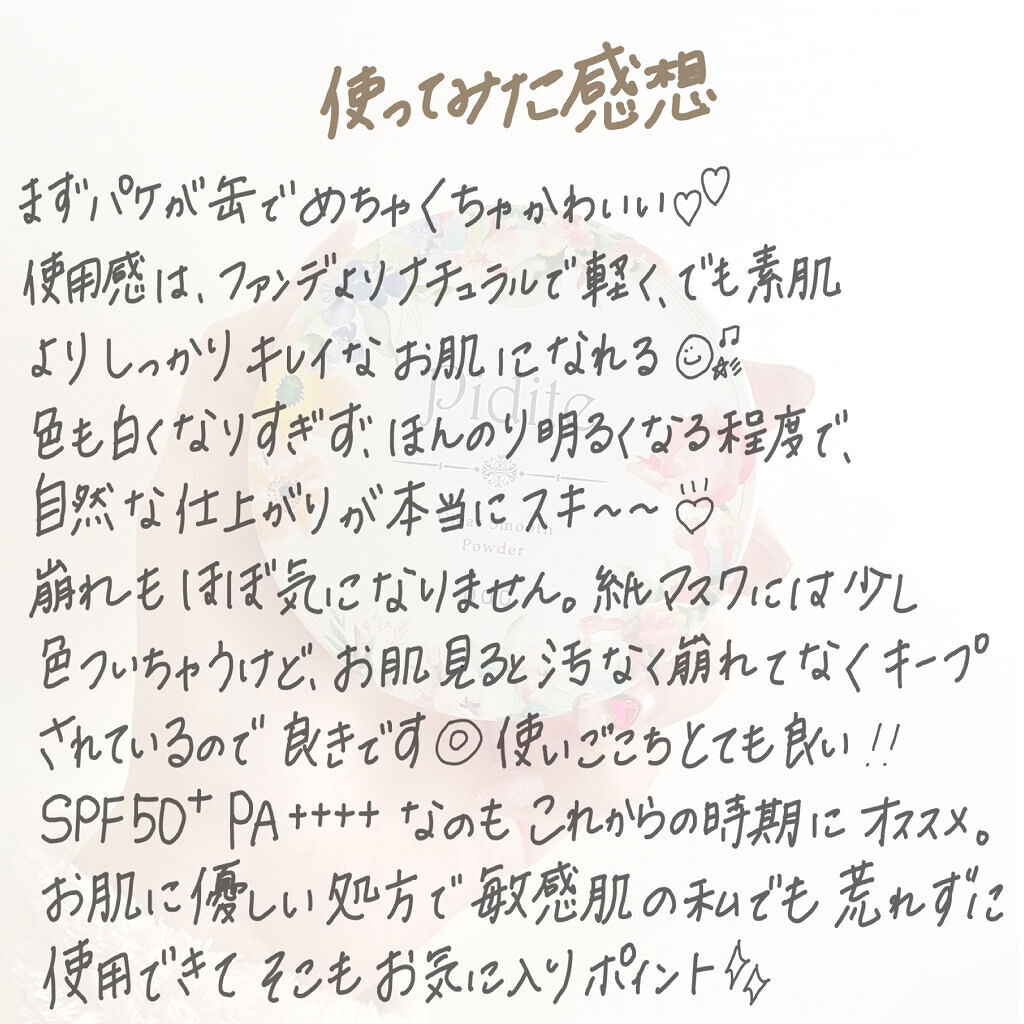 使ってみた感想
まずパケが缶でめちゃくちゃかわいい♡♡
使用感は、ファンデよりナチュラルで軽く、でも素肌
よりしっかりキレイなお肌になれる
色も白くなりすぎず、ほんのり明るくなる程度で、
自然な仕上がりが本当にスキ〜〜♡
崩れもほぼ気になりません。紙マスクには少し
色ついちゃうけど、お肌見ると汚なく崩れてなくキープ
されているので良きです◎使いごこちとても良い!!
SPF50+ PA++++ なのもこれからの時期にオススメ。
お肌に優しい処方で敏感肌の私でも荒れずに
使用できてそこもお気に入りポイント
Pidite
Smooth
Powder